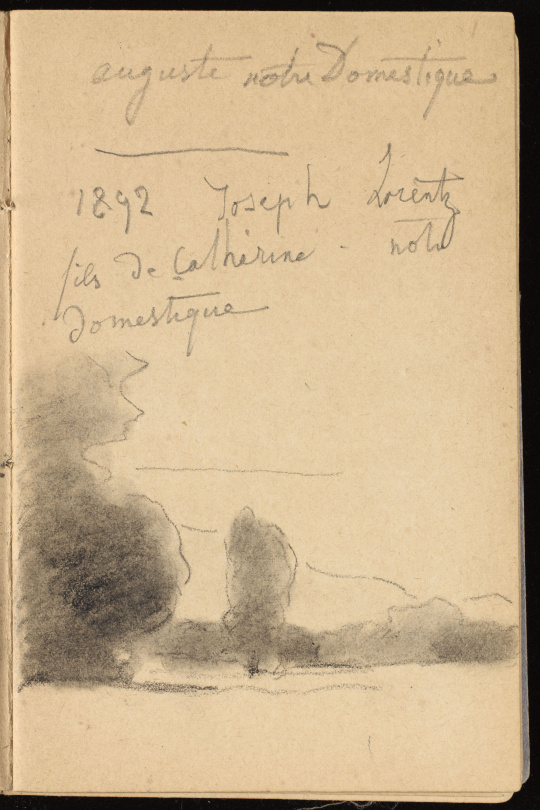 auguste notre Domestique
1892 Joseph Lorentz
fils de Catherine - notre
Domestique